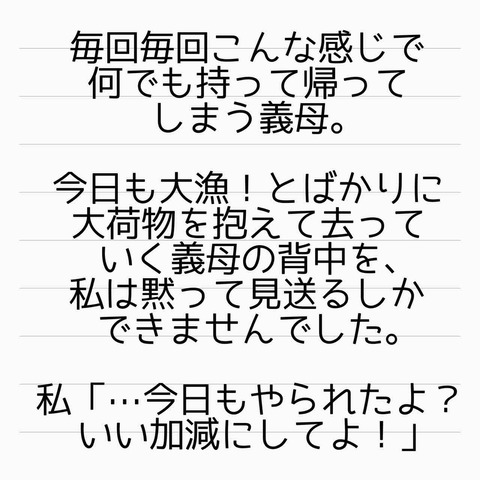 毎回毎回こんな感じで
何でも持って帰って
しまう義母。
今日も大漁！とばかりに
大荷物を抱えて去って
いく義母の背中を、
私は黙って見送るしか
できませんでした。
私「…今日もやられたよ？
いい加減にしてよ！」